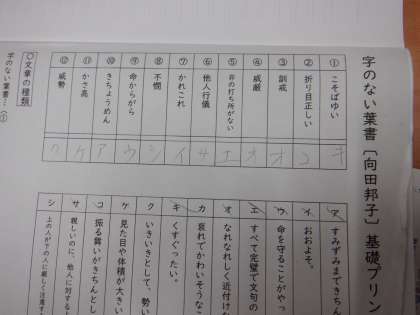 字のない葉書 〔向田邦子〕 基礎プリン
① こそばゆい キ
② 折り目正しい コ
③ 訓戒 オ
④ 威厳 オ
⑤ 非の打ち所がない エ
⑥ 他人行儀 サ
⑦ かれこれ イ
⑧ 不憫 シ
⑨ 命からがら ウ
⑩ きちょうめん ア
⑪ かさ高 ケ
⑫ 威勢 ク
ア すみずみまできちん
イ おおよそ。
ウ 命を守ることがやっ
エ すべて完璧で文句の
オ なれなれしく近付けな
カ 哀れでかわいそうな
キ くすぐったい。
ク いきいきとして、勢い
ケ 見た目や体積が大きい
コ 振る舞いがきちんとし
サ 親しいのに、他人に対する
シ 上の人が下の人に厳しく注意す
〇文章の種類
字のない葉書…①